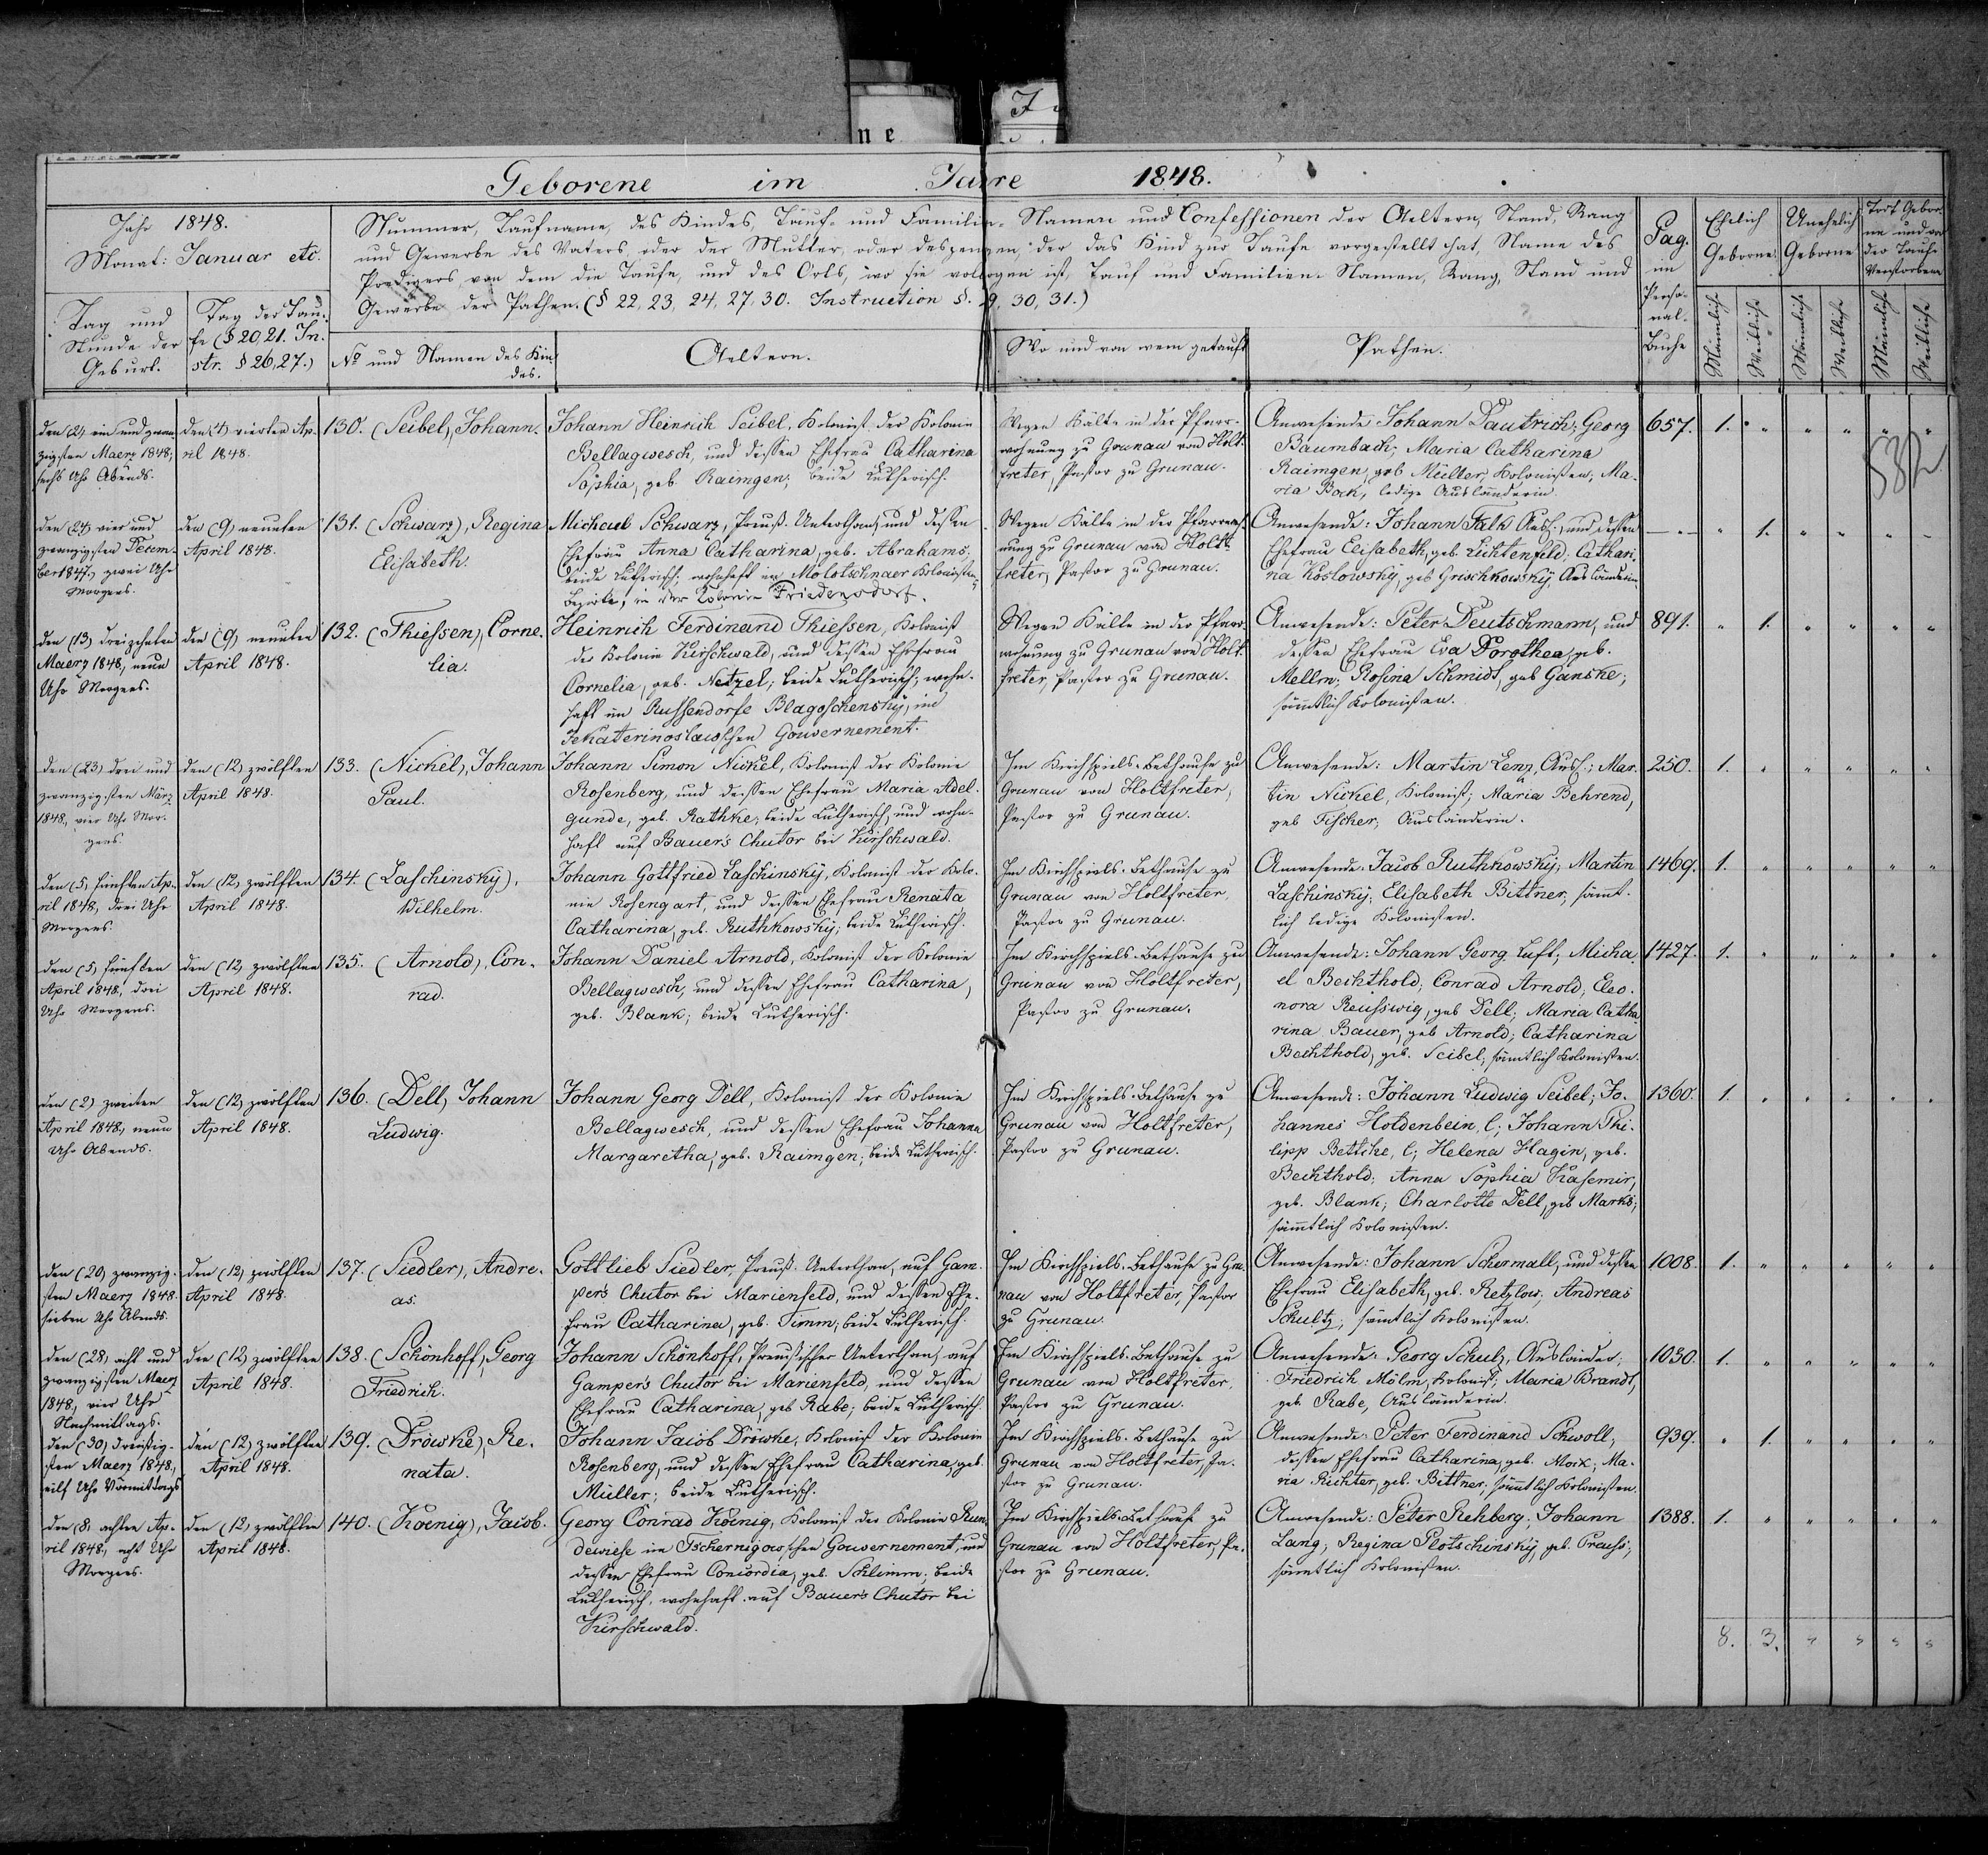 Geborene im Jahre 1848.
Jahr 1848.
Monat: Januar etc.
Tag und
Stunde der
Geburt.
Tag der Tau-
fe (§ 20, 21. In-
str. § 26, 27.)
Nummer, Taufname, des Kindes, Tauf- und Familien-Namen und Confessionen der Aeltern, Stand, Rang
und Gewerbe des Vaters oder der Mutter, oder desjenigen, der das Kind zur Taufe vorgestellt hat, Name des
Predigers, von dem die Taufe, und des Orts, wo sie vollzogen ist, Tauf und Familien-Namen, Rang, Stand und
Gewerbe der Pathen. (§ 22, 23, 24, 27, 30. Instruction §. 29, 30, 31.)
No und Namen des Kin-
des.
Aeltern.
Wo und von wem getauft
Pathen.
Pag.
im
Perso-
nal-
Buche
Ehelich
Geborne
Unehelich
Geborne
Todt Gebor-
ne und vor
der Taufe
Verstorbene
Männlich
Weiblich
Männlich
Weiblich
Männlich
Weiblich
den (21) ein und zwan-
zigsten Maerz 1848,
sechs Uhr Abends.
den (4) vierten Ap-
ril 1848.
130. (Seibel), Johann.
Johann Heinrich Seibel, Kolonist der Kolonie
Bellagwesch, und dessen Ehefrau Catharina
Sophia, geb. Raimgen; beide Lutherisch.
Wegen Kälte in der Pfarr-
wohnung zu Grunau von Holt-
freter, Pastor zu Grunau.
Anwesende Johann Dautrich; Georg
Baumbach; Maria Catharina
Raimgen, geb Müller, Kolonisten; Ma-
ria Bock, ledige Ausländerin.
657. 1. " " " " "
532
den (24) vier und
zwanzigsten Decem-
ber 1847, zwei Uhr
Morgens.
den (9) neunten
April 1848.
131. (Schwarz), Regina
Elisabeth.
Michael Schwarz, Preuß. Unterthan, und dessen
Ehefrau Anna Catharina, geb. Abrahams;
beide Lutherisch; wohnhaft im Molotschnaer Kolonisten-
Bezirke, in der Kolonie Friedensdorf.
Wegen Kälte in der Pfarrwoh-
nung zu Grunau von Holt-
freter, Pastor zu Grunau.
Anwesende: Johann Falk Ausl., und dessen
Ehefrau Elisabeth, geb. Lichtenfeld, Cathari-
na Koslowsky, geb Grischkowsky Ausländerin
— " — " 1. " " " "
den (13) dreizehnten
Maerz 1848, neun
Uhr Morgens.
den (9) neunten
April 1848.
132. (Thiessen), Corne-
lia.
Heinrich Ferdinand Thiessen, Kolonist
der Kolonie Kirschwald, und dessen Ehefrau
Cornelia, geb. Netzel; beide Lutherisch; wohn-
haft im Russendorfe Blagoschensky, im
Jekaterinoslawschen Gouvernement.
Wegen Kälte in der Pfarr-
wohnung zu Grunau von Holt-
freter, Pastor zu Grunau.
Anwesende: Peter Deutschmann, und
dessen Ehefrau Eva Dorothea, geb.
Mellm; Rosina Schmidt, geb Ganske;
sämtlich Kolonisten.
891. " 1. " " " "
den (23) drei und
zwanzigsten März
1848, vier Uhr Mor-
gens.
den (12) zwölften
April 1848.
133. (Nickel), Johann
Paul.
Johann Simon Nickel, Kolonist der Kolonie
Rosenberg, und dessen Ehefrau Maria Adel-
gunde, geb. Rathke; beide Lutherisch, und wohn-
haft auf Bauer's Chutor bei Kirschwald.
Im Kirchspiels-Bethause zu
Grunau von Holtfreter,
Pastor zu Grunau.
Anwesende: Martin Lenz, Ausl.; Mar-
tin Nickel, Kolonist; Maria Behrend,
geb Fischer, Ausländerin.
250. 1. " " " " "
den (5) fünften Ap-
ril 1848, drei Uhr
Morgens.
den (12) zwölften
April 1848.
134. (Laschinsky),
Wilhelm.
Johann Gottfried Laschinsky, Kolonist der Kolo-
nie Rosengart, und dessen Ehefrau Renata
Catharina, geb. Ruthkowsky; beide Lutherisch.
Im Kirchspiels-Bethause zu
Grunau von Holtfreter,
Pastor zu Grunau.
Anwesende: Jacob Ruthkowsky, Martin
Laschinsky; Elisabeth Bittner, sämt-
lich ledige Kolonisten.
1469. 1. " " " " "
den (5) fünften
April 1848, drei
Uhr Morgens.
den (12) zwölften
April 1848.
135. (Arnold), Con-
rad.
Johann Daniel Arnold, Kolonist der Kolonie
Bellagwesch, und dessen Ehefrau Catharina,
geb. Blank; beide Lutherisch.
Im Kirchspiels-Bethause zu
Grunau von Holtfreter,
Pastor zu Grunau.
Anwesende: Johann Georg Luft; Micha-
el Bechthold; Conrad Arnold; Eleo-
nora Reusswig, geb Dell; Maria Catha-
rina Bauer, geb Arnold; Catharina
Bechthold, geb. Seibel; sämtlich Kolonisten.
1427. 1. " " " " "
den (2) zweiten
April 1848, neun
Uhr Abends.
den (12) zwölften
April 1848.
136. (Dell), Johann
Ludwig.
Johann Georg Dell, Kolonist der Kolonie
Bellagwesch, und dessen Ehefrau Johanna
Margaretha, geb. Raimgen; beide Lutherisch.
Im Kirchspiels-Bethause zu
Grunau von Holtfreter,
Pastor zu Grunau.
Anwesende: Johann Ludwig Seibel; Jo-
hannes Holdenbein, l; Johann Phi-
lipp Bettche, l; Helena Hagin, geb.
Bechthold; Anna Sophia Kasemir,
geb. Blank; Charlotte Dell, geb Marks;
sämtlich Kolonisten.
1360. 1. " " " " "
den (20) zwanzig-
sten Maerz 1848
sieben Uhr Abends.
den (12) zwölften
April 1848.
137. (Siedler), Andre-
as.
Gottlieb Siedler, Preuß. Unterthan, auf Gam-
per's Chutor bei Marienfeld, und dessen Ehe-
frau Catharina, geb. Timm; beide Lutherisch.
Im Kirchspiels-Bethause zu Gru-
nau von Holtfreter, Pastor
zu Grunau.
Anwesende: Johann Schermall, und dessen
Ehefrau Elisabeth, geb. Retzlow; Andreas
Schultz; sämtlich Kolonisten.
1008. 1. " " " " "
den (28) acht und
zwanzigsten Maerz
1848, vier Uhr
Nachmittags.
den (12) zwölften
April 1848.
138. (Schönhoff), Georg
Friedrich.
Johann Schönhoff, Preussischer Unterthan, auf
Gamper's Chutor bei Marienfeld, und dessen
Ehefrau Catharina, geb Rabe; beide Lutherisch.
Im Kirchspiels-Bethause zu
Grunau von Holtfreter,
Pastor zu Grunau.
Anwesende: Georg Schulz, Ausländer;
Friedrich Mölm, Kolonist; Maria Brandt,
geb. Rabe, Ausländerin.
1030. 1. " " " " "
den (30) dreissig-
sten Maerz 1848,
eilf Uhr Vormittags
den (12) zwölften
April 1848.
139. (Dröwske), Re-
nata.
Johann Jacob Dröwske, Kolonist der Kolonie
Rosenberg, und dessen Ehefrau Catharina, geb.
Müller; beide Lutherisch.
Im Kirchspiels-Bethause zu
Grunau von Holtfreter, Pa-
stor zu Grunau.
Anwesende: Peter Ferdinand Schwoll;
dessen Ehefrau Catharina, geb. Mork; Ma-
ria Richter, geb. Bittner; sämtlich Kolonisten.
939. " 1. " " " "
den (8) achten Ap-
ril 1848, acht Uhr
Morgens.
den (12) zwölften
April 1848.
140. (Koenig), Jacob.
Georg Conrad Koenig, Kolonist der Kolonie Run-
dewiese im Tschernigowschen Gouvernement, und
dessen Ehefrau Concordia, geb. Schlimm; beide
Lutherisch, wohnhaft auf Bauer's Chutor bei
Kirschwald.
Im Kirchspiels-Bethause zu
Grunau von Holtfreter, Pa-
stor zu Grunau.
Anwesende: Peter Rehberg; Johann
Lang; Regina Plotschinsky, geb. Preuss;
sämtlich Kolonisten.
1388. 1. " " " " "
8. 3. " " " "